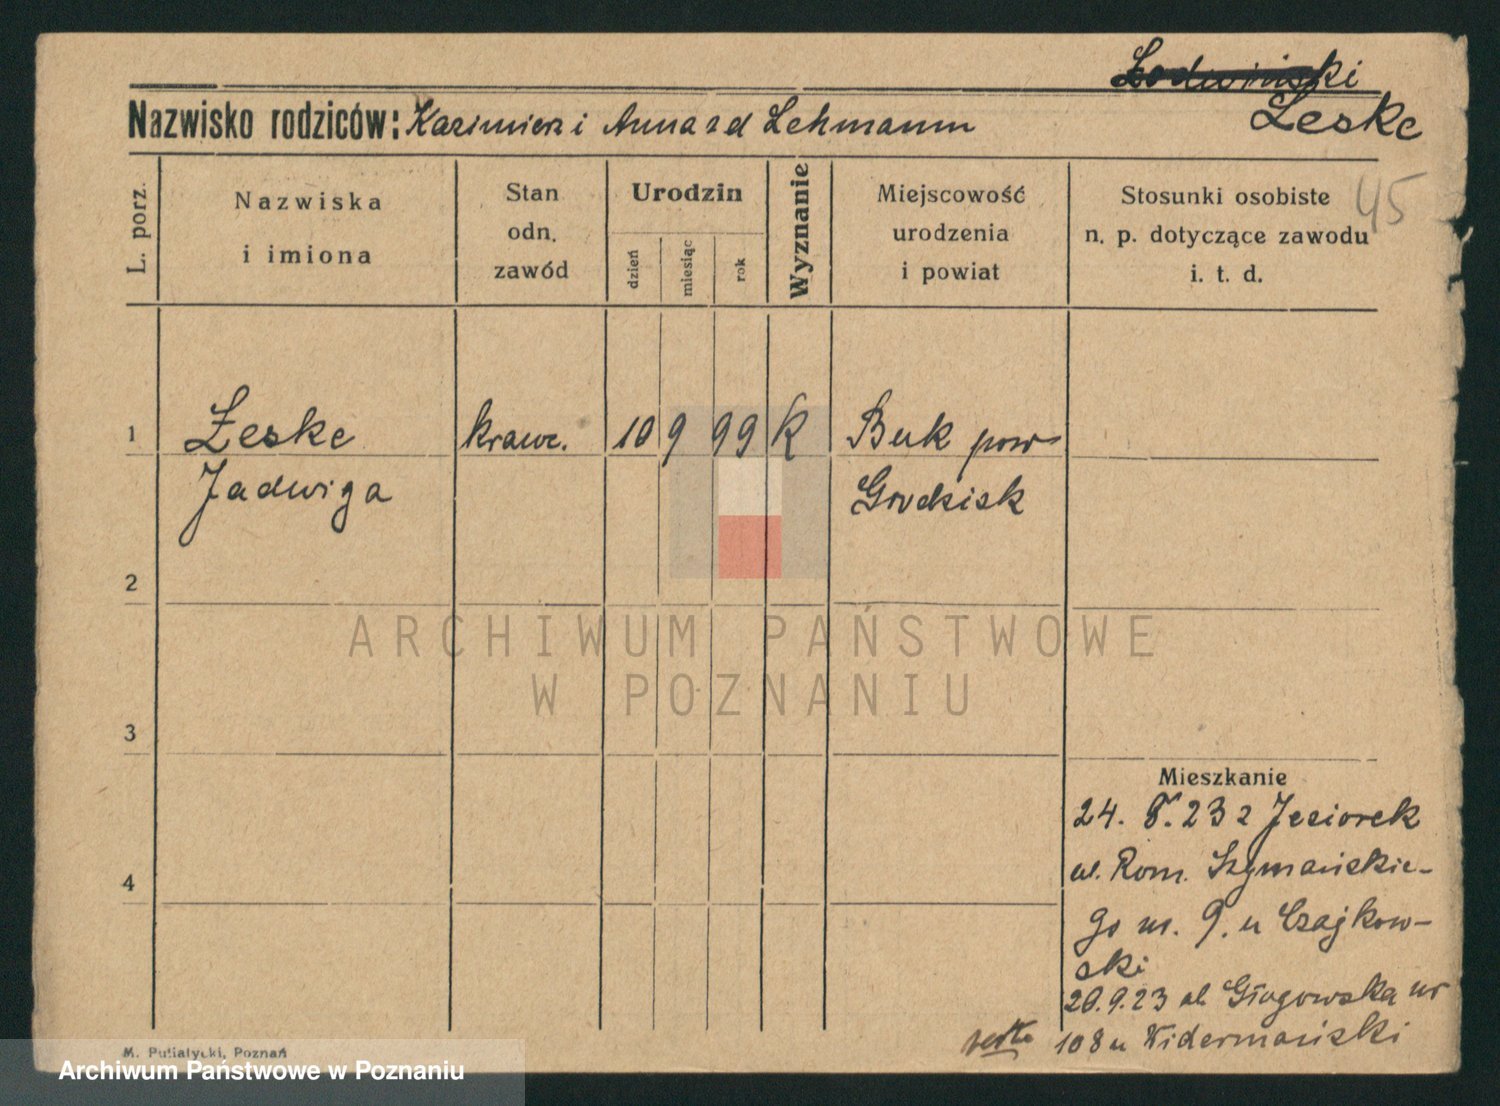 Nazwisko rodziców: Kazimierz i Anna z d Lehmann
Żeske
45
L. porz.
Nazwiska
i imiona
Stan
odn.
zawód
Urodzin
dzień
miesiąc
rok
Wyznanie
Miejscowość
urodzenia
i powiat
Stosunki osobiste
n. p. dotyczące zawodu
i. t. d.
1
Żeske
krawc.
10
9
99
K
Buk pow
Jadwiga
Grodzisk
2
ARCHIWUM PAŃSTWOWE
W POZNANIU
3
Mieszkanie
24. 8. 23 z Jeziorek
ul. Rom. Szymańskie-
4
go m. 9. u Czajkow-
ski
20.9.23 ul. Głogowska nr
108 u
M. Putiatycki, Poznań
Archiwum Państwowe w Poznaniu